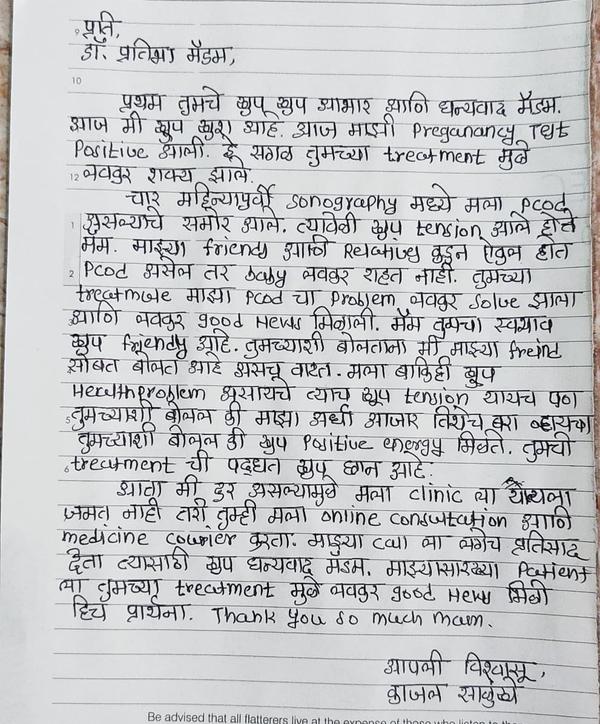 प्रति,
डॉ. प्रतिभा मॅडम,
प्रथम तुमचे खुप खुप आभार आणि धन्यवाद मॅडम.
आज मी खुप खुश आहे. आज माझी Preganancy Test
Positive आली. हे सगळ तुमच्या treatment मुळे
लवकर शक्य झाले.
चार महिन्यापुर्वी sonography मध्ये मला PCOD
असल्याचे समोर आले. त्यावेळी खुप tension आले होते
मॅम. माझ्या friends आणि Relatives कडुन ऐकुल होत
PCOD असेल तर baby लवकर राहत नाही. तुमच्या
treatmule माझा PCOD चा problem लवकर solve झाला
आणि लवकर good News मिळाली. मॅम तुमचा स्वभाव
खुप friendly आहे. तुमच्याशी बोलताना मी माझ्या freind
सोबत बोलत आहे असच वाटत. मला बाकिही खुप
Healthproblem असायचे त्याच खुप tension यायच पण
तुमच्याशी बोलल की माझा अर्धा आजार तिथेच बरा व्हायचा
तुमच्याशी बोलल की खुप Positive energy मिळते. तुमची
treatment ची पद्धत खुप छान आहे.
आता मी दुर असल्यामुळे मला clinic ला यायला
जमत नाही तरी तुम्ही मला online consultation आणि
medicine courier करता. माझ्या call ला लगेच प्रतिसाद
देता त्यासाठी खुप धन्यवाद मॅडम. माझ्यासारख्या Patient
ला तुमच्या treatment मुळे लवकर good News मिळो
हिच प्रार्थना. Thank you so much mam.
आपली विश्वासू,
काजल साळुंखे
Be advised that all flatterers live at the expense of those who listen to
9
10
12
1
2
5
6